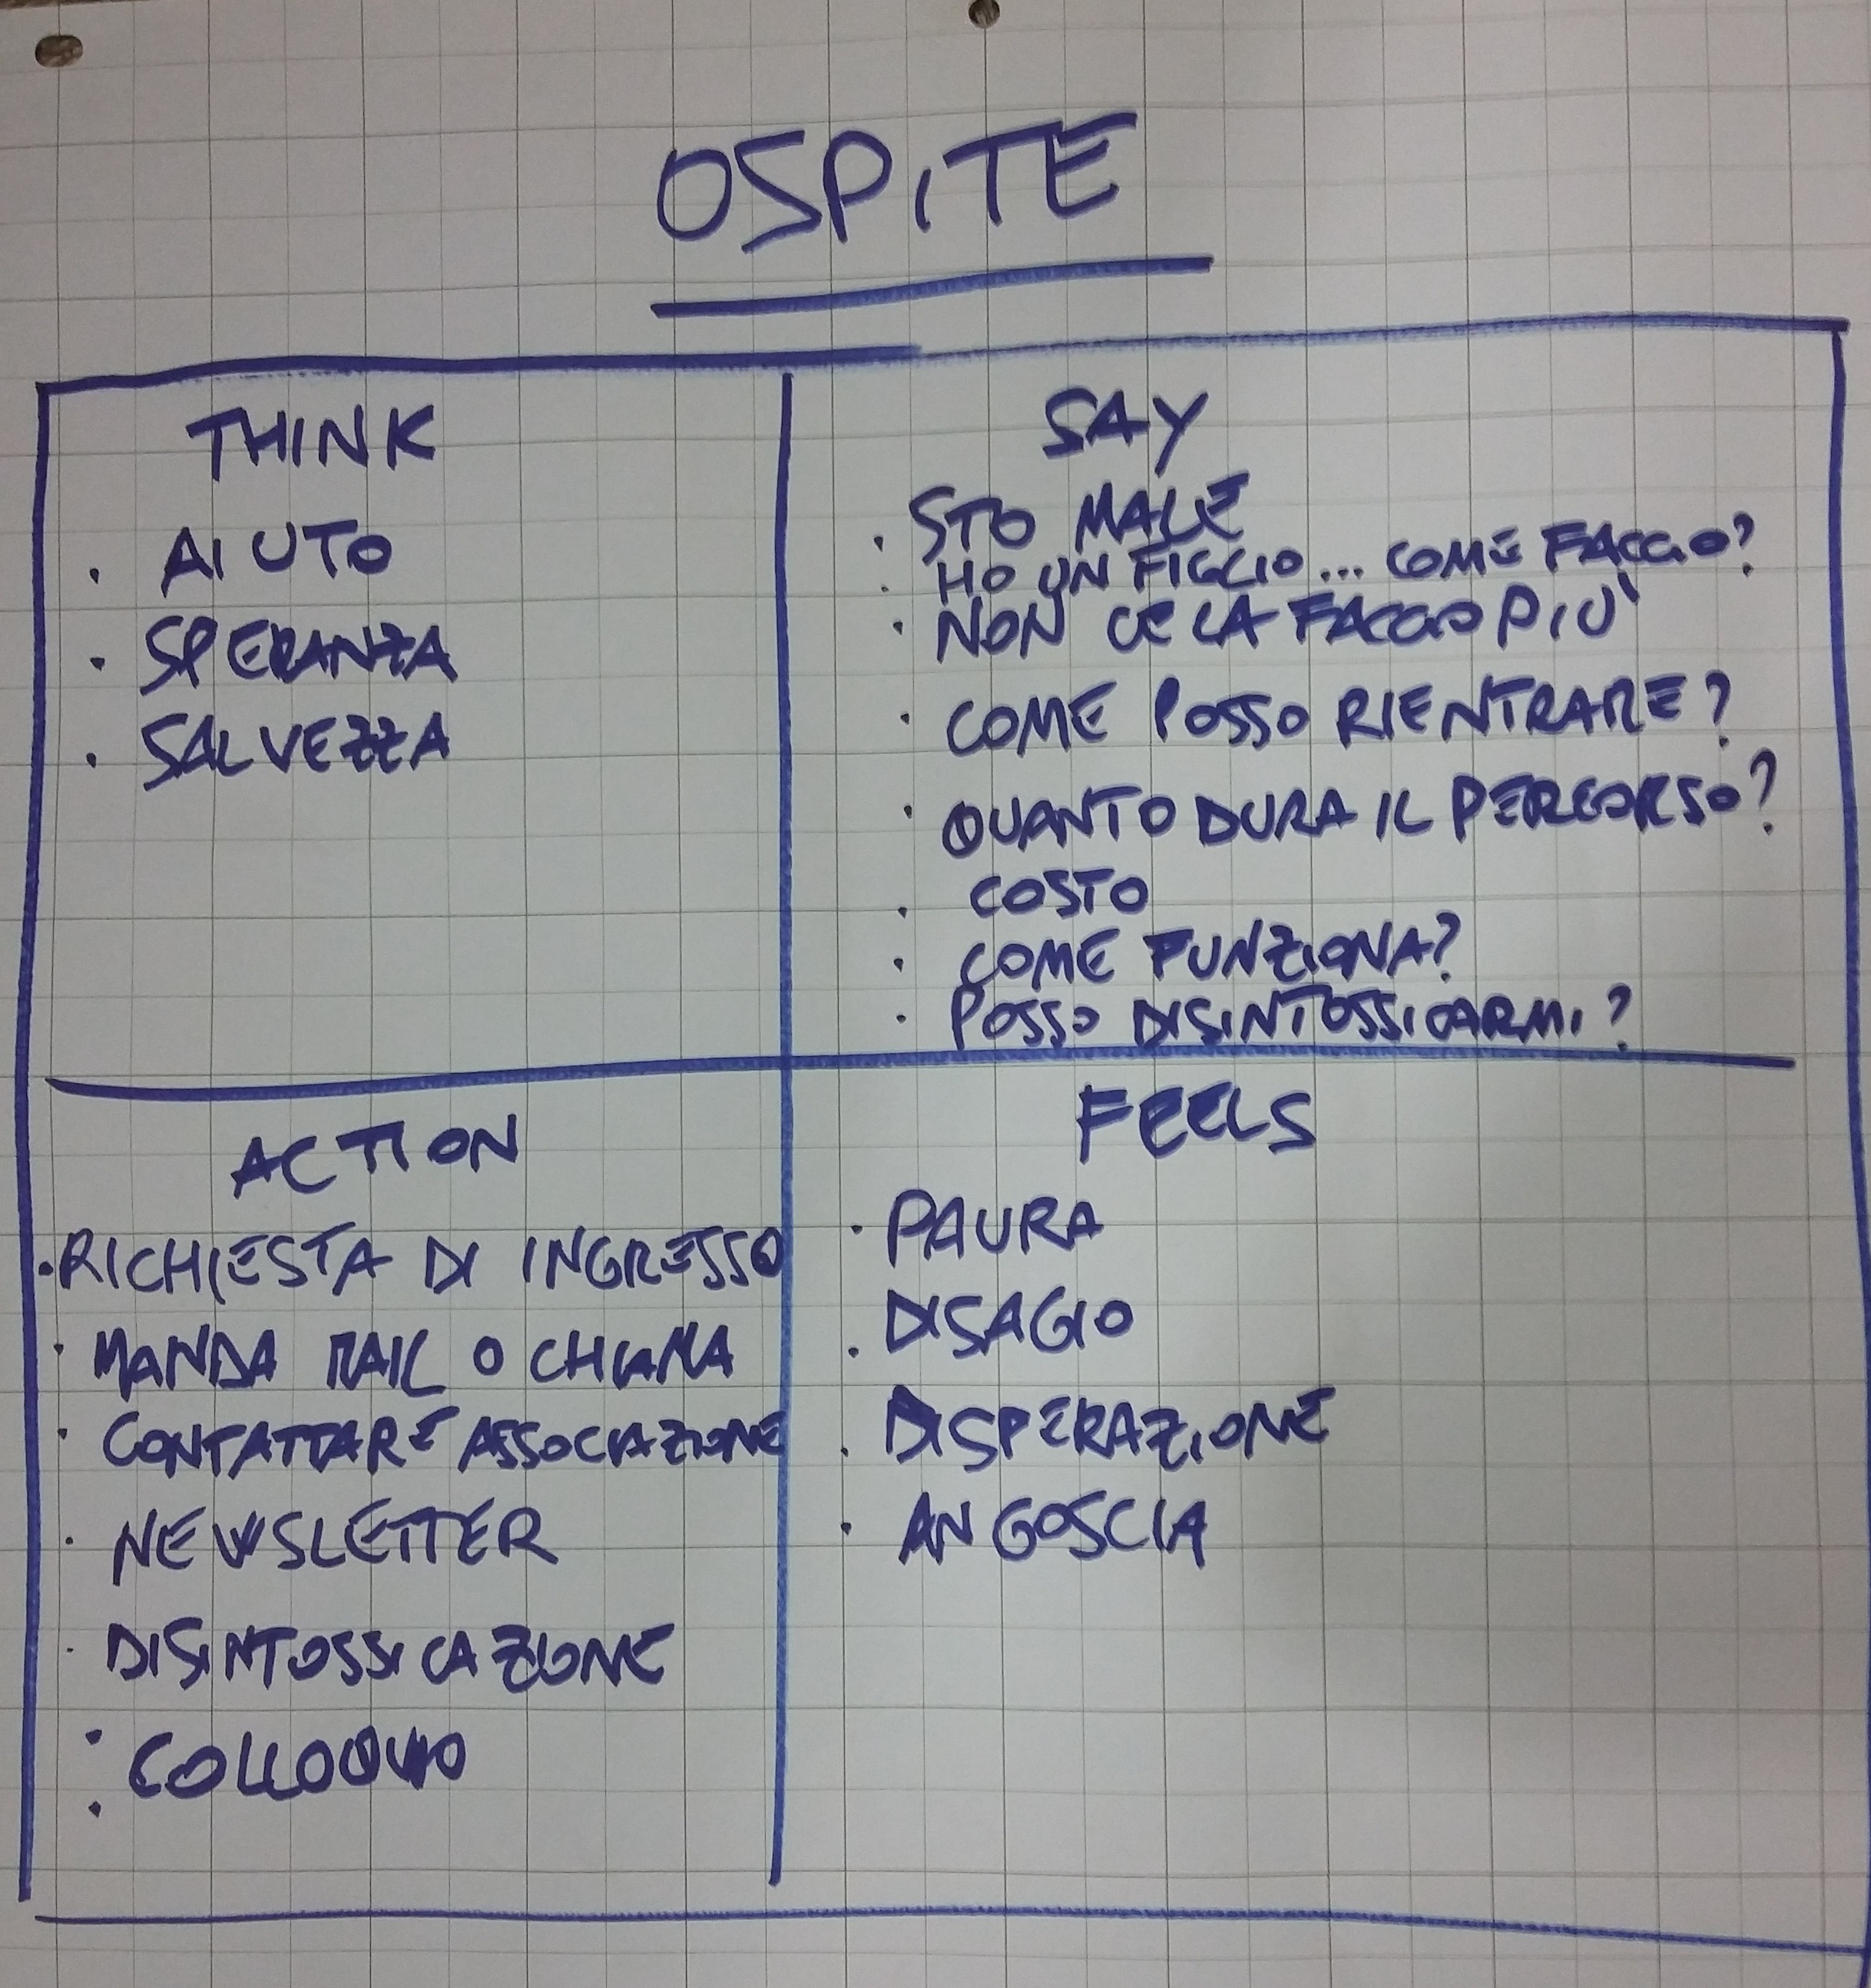 OSPITE
THINK
· AIUTO
· SPERANZA
· SALVEZZA
SAY
· STO MALE
· HO UN FIGLIO... COME FACCIO?
· NON CE LA FACCIO PIÙ
· COME POSSO RIENTRARE?
· QUANTO DURA IL PERCORSO?
· COSTO
· COME FUNZIONA?
· POSSO DISINTOSSICARMI?
ACTION
· RICHIESTA DI INGRESSO
· MANDA MAIL O CHIAMA
· CONTATTARE ASSOCIAZIONE
· NEWSLETTER
· DISINTOSSICAZIONE
· COLLOQUIO
·
FEELS
· PAURA
· DISAGIO
· DISPERAZIONE
· ANGOSCIA